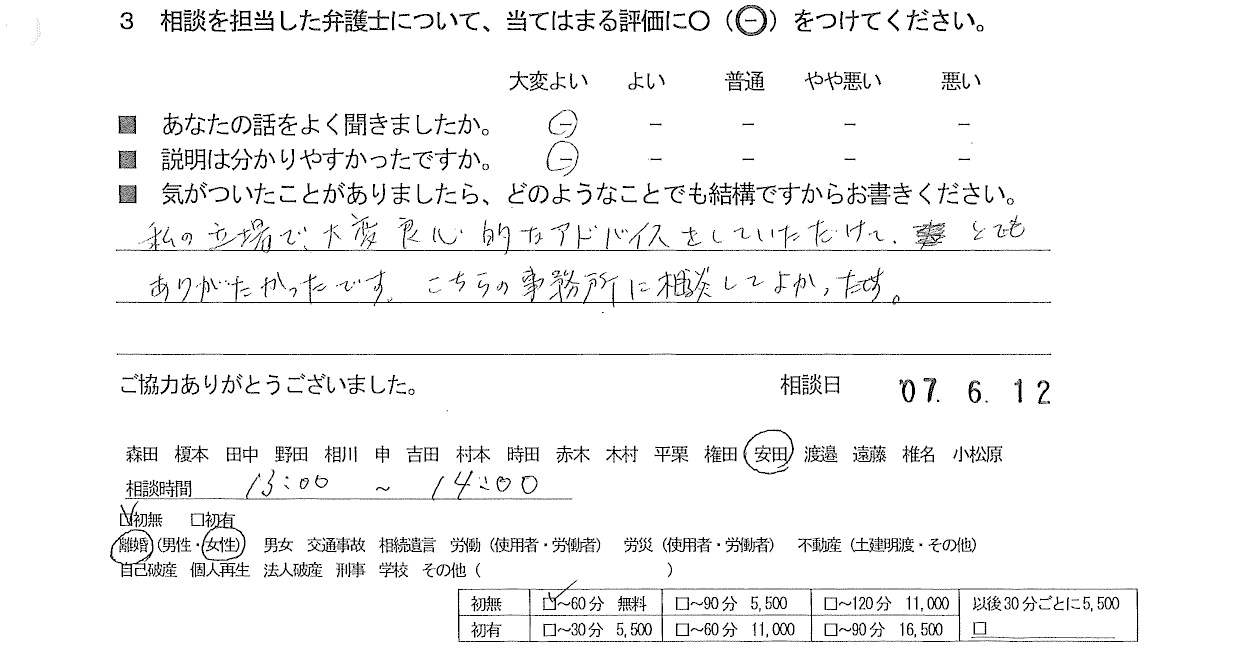 3 相談を担当した弁護士について、当てはまる評価に○（㊀）をつけてください。
大変よい よい 普通 やや悪い 悪い
■ あなたの話をよく聞きましたか。 － － － － －
■ 説明は分かりやすかったですか。 － － － － －
■ 気がついたことがありましたら、どのようなことでも結構ですからお書きください。
私の立場で、大変良心的なアドバイスをしていただけて、とても
ありがたかったです。こちらの事務所に相談してよかったです。
ご協力ありがとうございました。 相談日 '07. 6. 12
森田 榎本 田中 野田 相川 申 吉田 村本 時田 赤木 木村 平栗 権田 安田 渡邉 遠藤 椎名 小松原
相談時間 13:00 ～ 14:00
□初無 □初有
離婚（男性・女性） 男女 交通事故 相続遺言 労働（使用者・労働者） 労災（使用者・労働者） 不動産（土建明渡・その他）
自己破産 個人再生 法人破産 刑事 学校 その他（ ）
初無 □～60分 無料 □～90分 5,500 □～120分 11,000 以後30分ごとに5,500
初有 □～30分 5,500 □～60分 11,000 □～90分 16,500 □